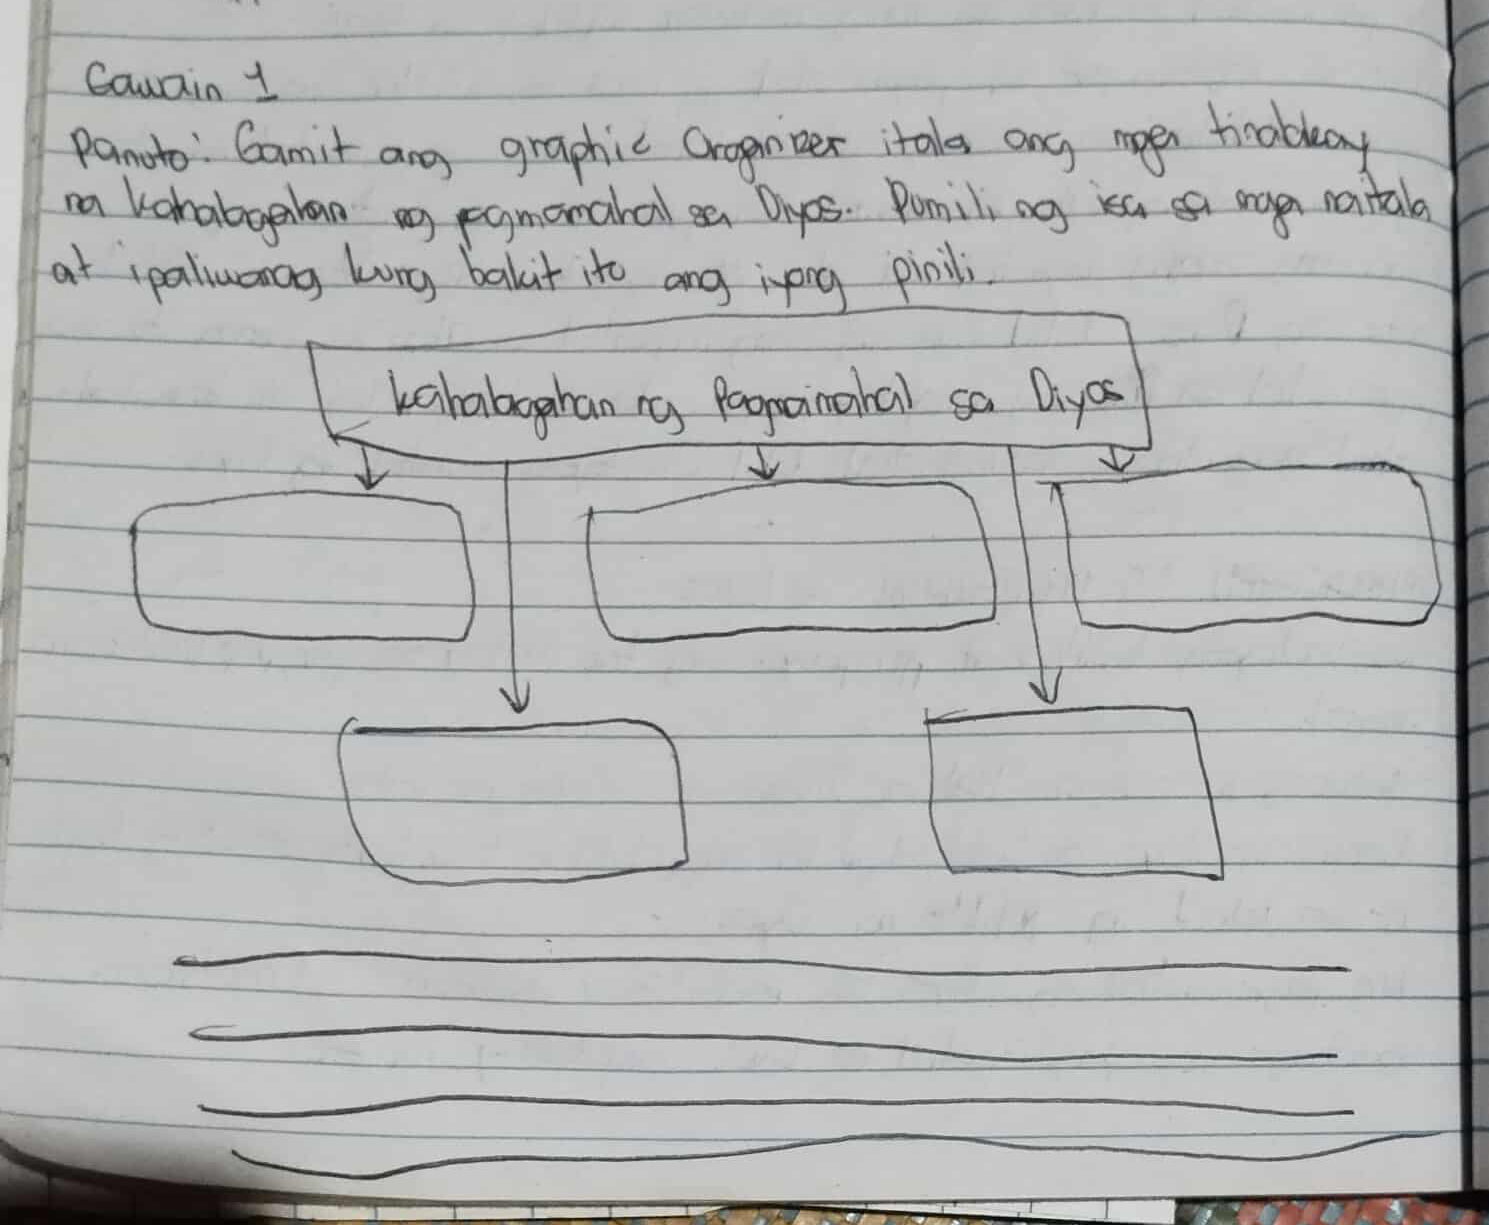 Gawain 1
Panuto: Gamit ang graphic Organizer itala ang mga tinalakay
na kahalagahan ng pagmamahal sa Diyos. Pumili ng isa sa mga naitala
at ipaliwanag kung bakit ito ang iyong pinili.
Kahalagahan ng Pagmamahal sa Diyos